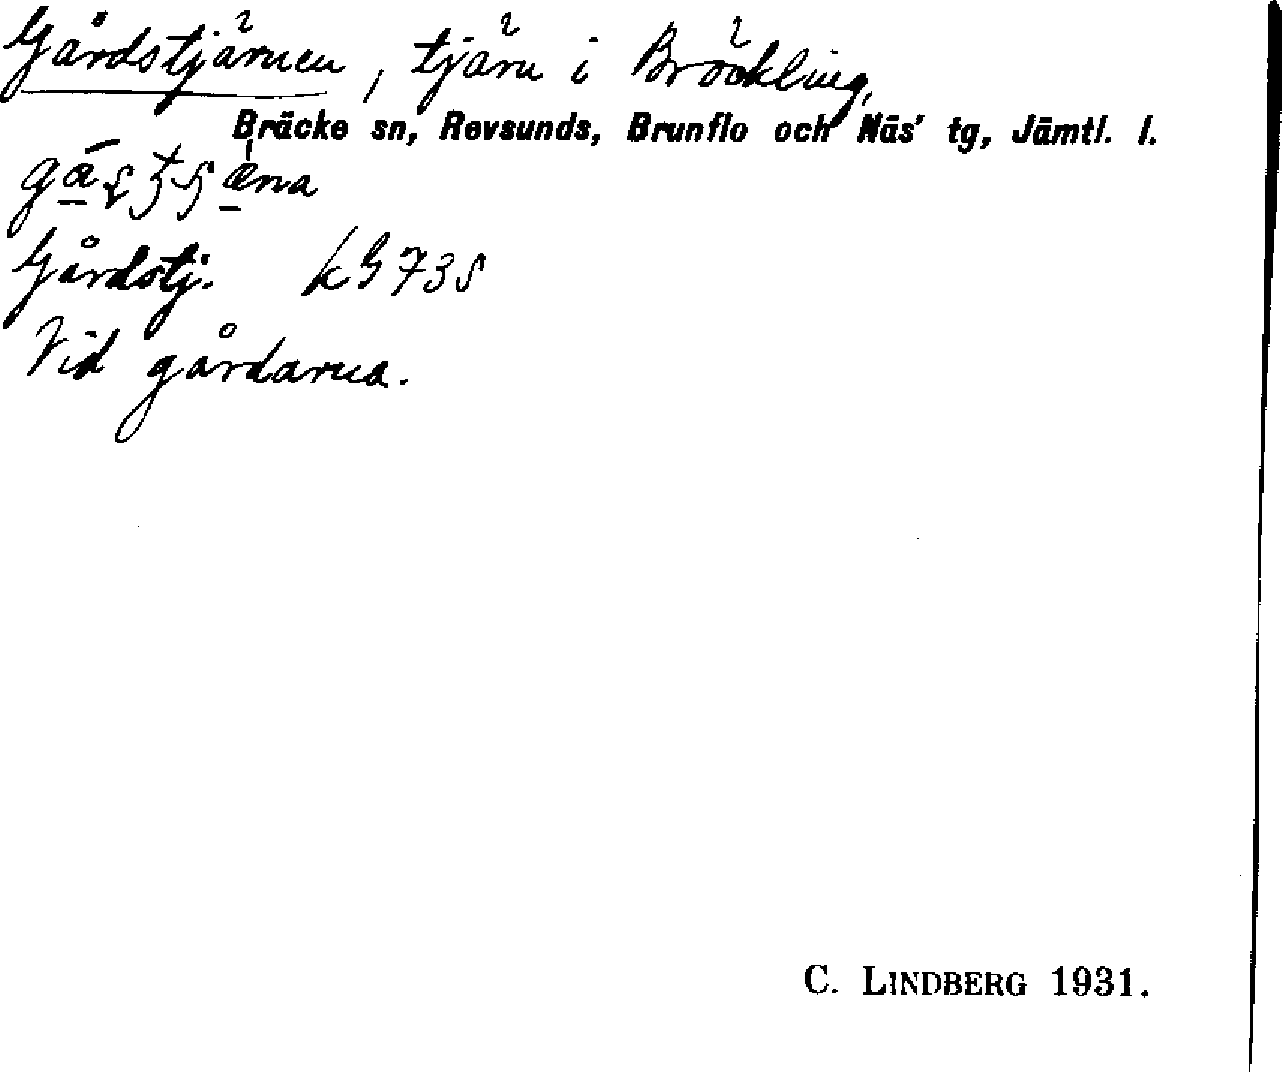 Gårdstjärnen, tjärn i Bräckling,
Bräcke sn, Revsunds, Brunflo och Näs' tg, Jämtl. l.
Gårdstj. kG 73S
Vid gårdarna.
C. LINDBERG 1931.